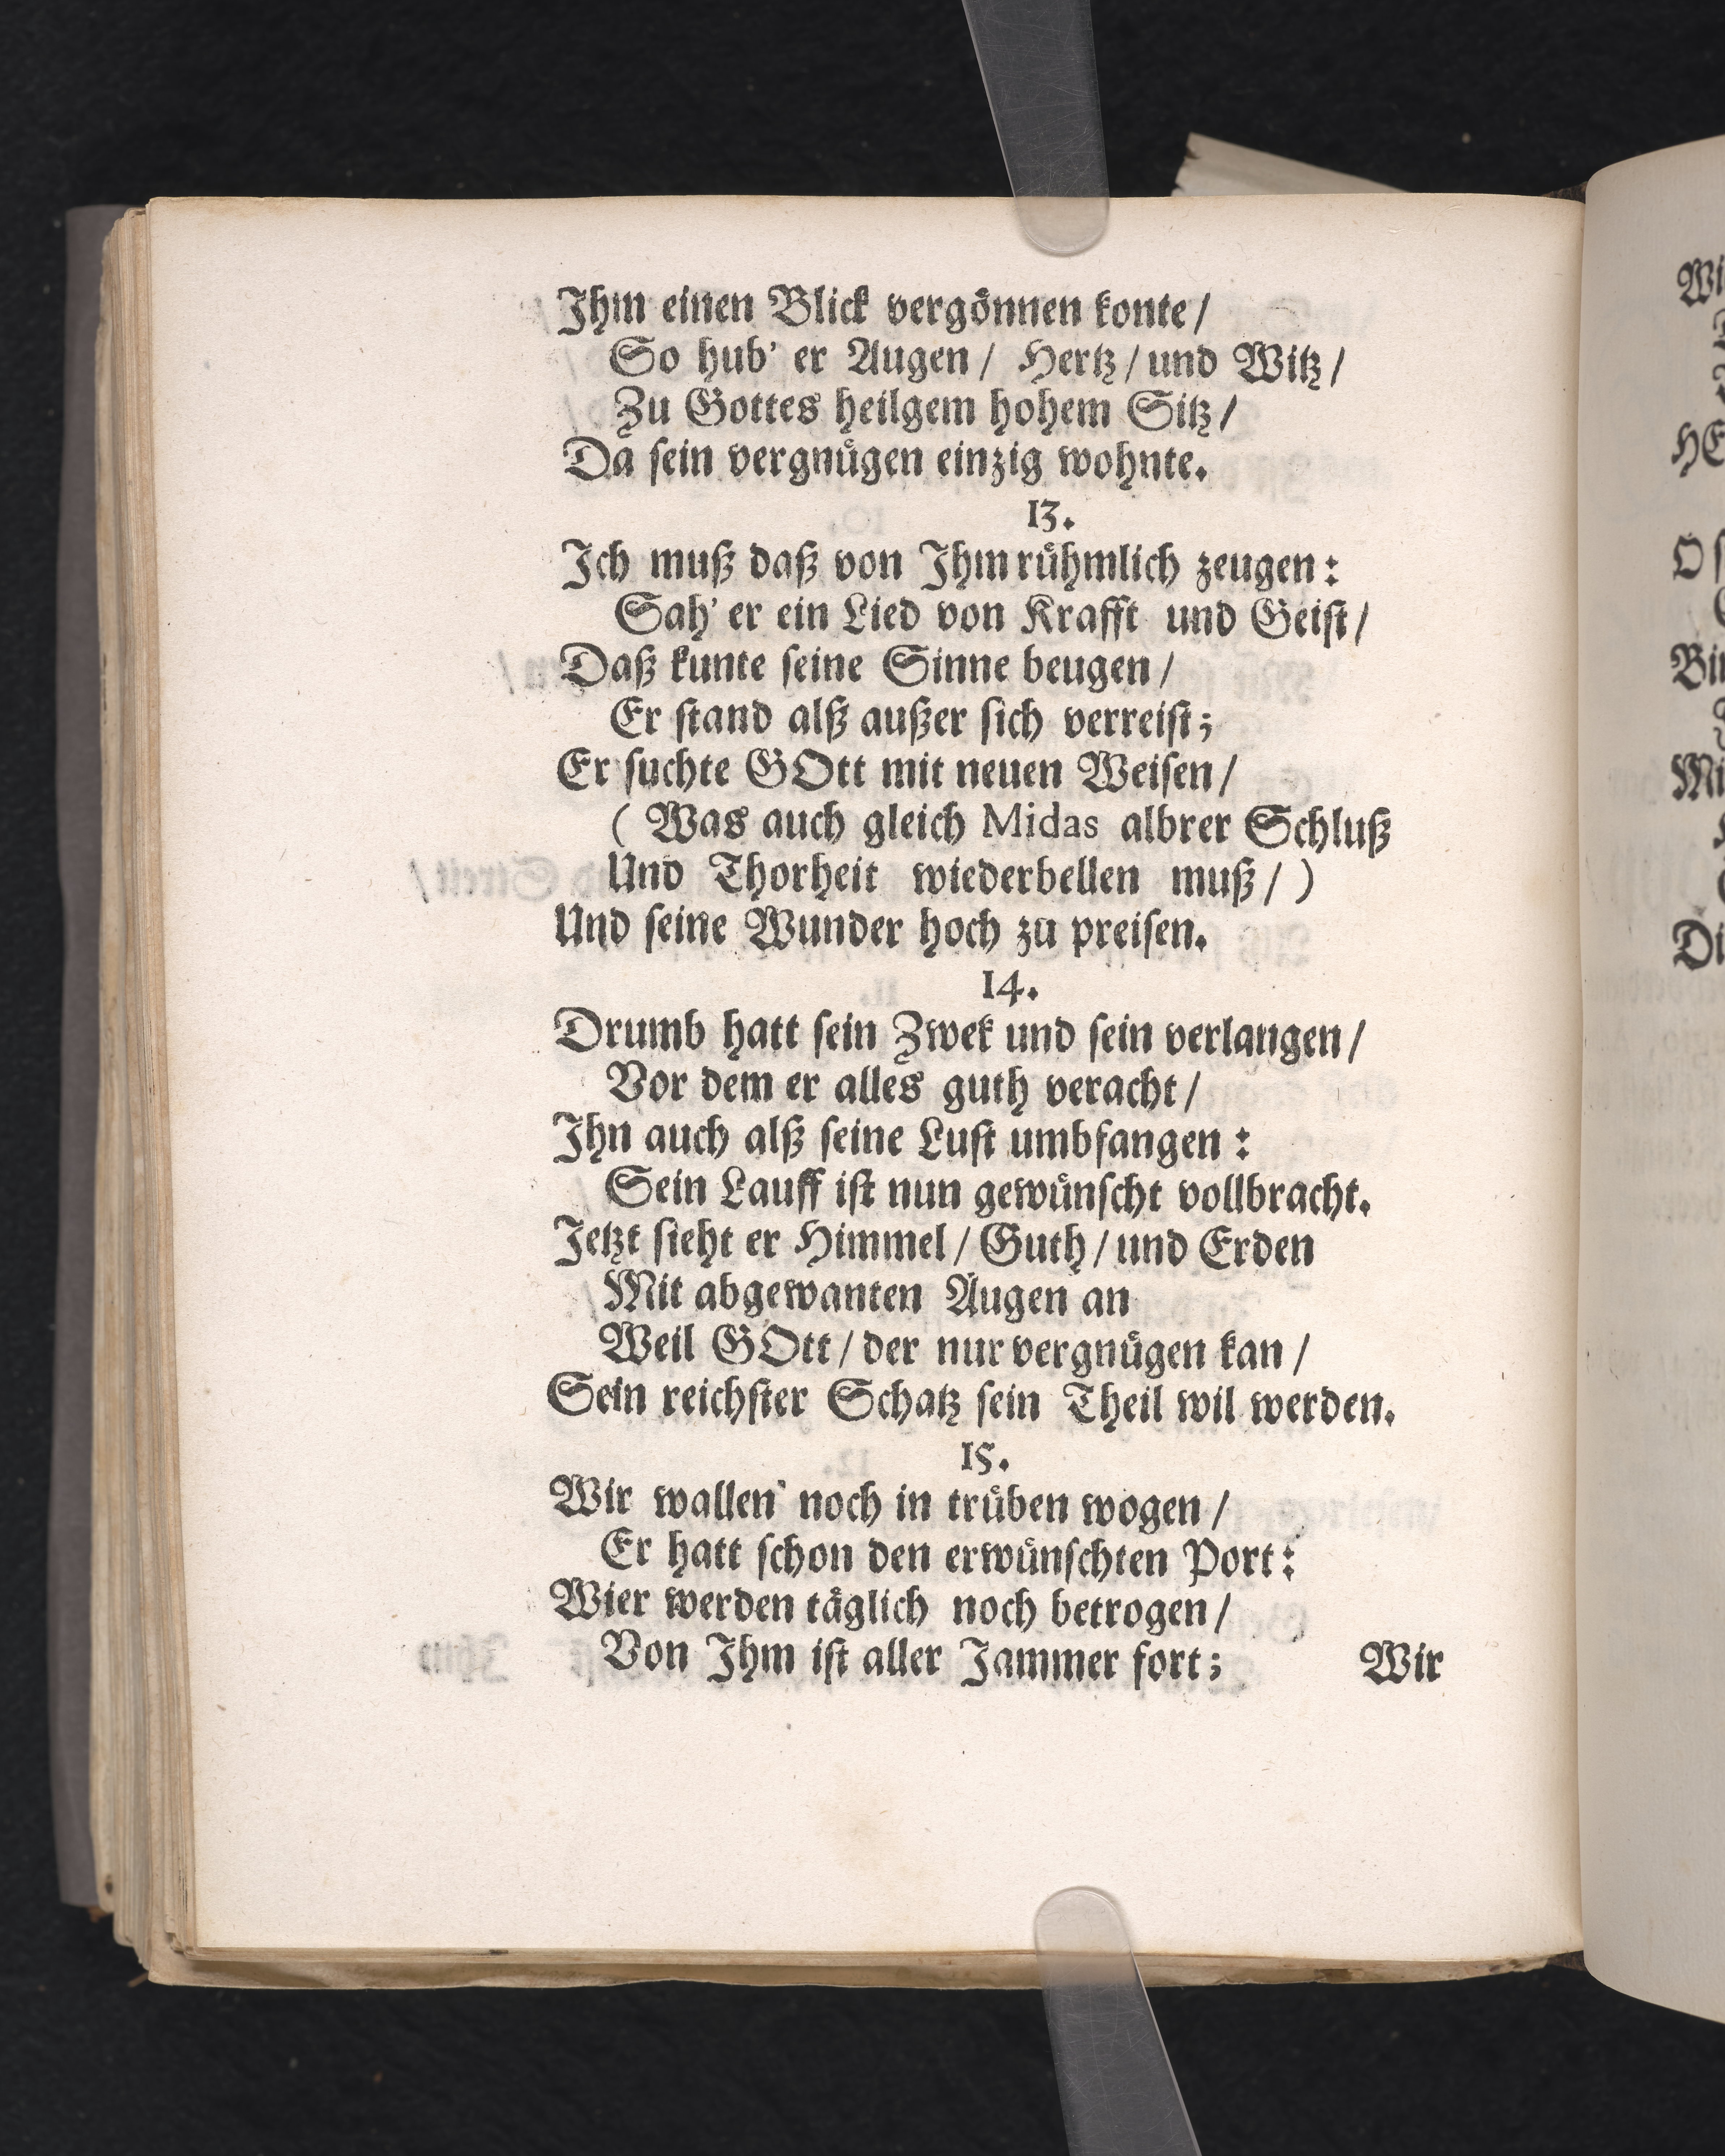 Ihm einen Blick vergönnen konte/
So hub' er Augen/ Hertz/ und Witz/
Zu Gottes heilgem hohem Sitz/
Da sein vergnügen einzig wohnte.
13.
Ich muß daß von Ihm rühmlich zeugen:
Sah' er ein Lied von Krafft und Geist/
Daß kunte seine Sinne beugen/
Er stand alß außer sich verreist;
Er suchte GOtt mit neuen Weisen/
( Was auch gleich Midas albrer Schluß
Und Thorheit wiederbellen muß/ )
Und seine Wunder hoch zu preisen.
14.
Drumb hatt sein Zwek und sein verlangen/
Vor dem er alles guth veracht/
Ihn auch alß seine Lust umbfangen:
Sein Lauff ist nun gewünscht vollbracht.
Jetzt sieht er Himmel/ Guth/ und Erden
Mit abgewanten Augen an
Weil GOtt/ der nur vergnügen kan/
Sein reichster Schatz sein Theil wil werden.
15.
Wir wallen noch in trüben wogen/
Er hatt schon den erwünschten Port:
Wier werden täglich noch betrogen/
Von Ihm ist aller Jammer fort;
Wir